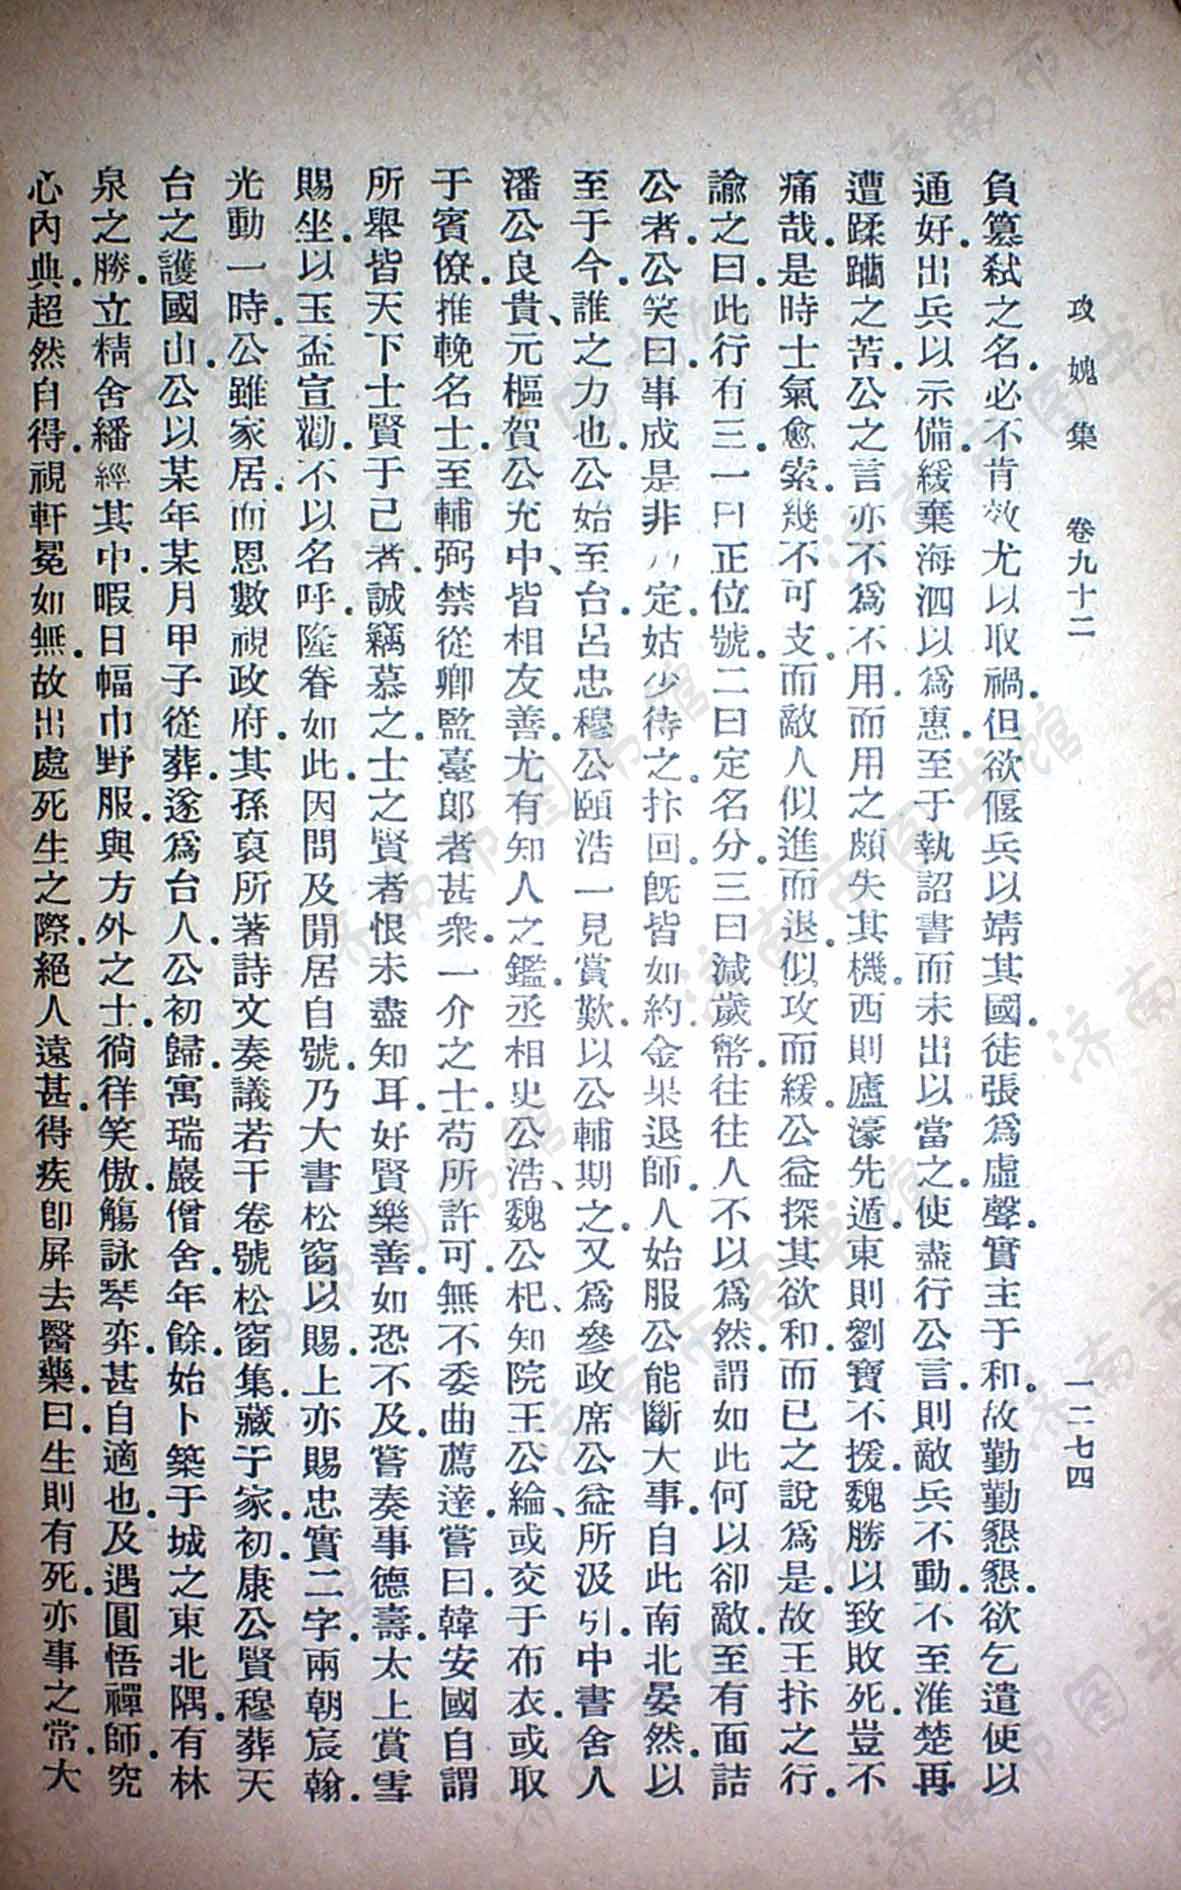 攻媿集　卷九十二　一二七四
負簒弒之名。必不肯效尤以取禍。但欲偃兵以靖其國。徒張爲虛聲。實主于和。故勤勤懇懇。欲乞遣使以
通好。出兵以示備。緩棄海泗以爲惠。至于執詔書而未出以當之。使盡行公言。則敵兵不動。不至淮楚再
遭蹂躪之苦。公之言亦不爲不用。而用之頗失其機。西則廬濠先遁。東則劉寶不援。魏勝以致敗死。豈不
痛哉。是時士氣愈索。幾不可支。而敵人似進而退。似攻而緩。公益探其欲和。而已之說爲是。故王抃之行。
諭之曰。此行有三。一曰正位號。二曰定名分。三曰減歲幣。往往人不以爲然。謂如此何以卻敵。至有面詰
公者。公笑曰。事成是非乃定。姑少待之。抃回。旣皆如約。金果退師。人始服公能斷大事。自此南北晏然。以
至于今。誰之力也。公始至台。呂忠穆公頤浩一見賞歎。以公輔期之。又爲參政席公益所汲引。中書舍人
潘公良貴、元樞賀公充中、皆相友善。尤有知人之鑑。丞相史公浩、魏公杞、知院王公綸、或交于布衣。或取
于賓僚。推輓名士。至輔弼禁從卿監臺郎者甚衆。一介之士。苟所許可。無不委曲薦達。嘗曰。韓安國自謂
所舉皆天下士賢于己者。誠竊慕之。士之賢者恨未盡知耳。好賢樂善。如恐不及。嘗奏事德壽。太上賞雪
賜坐。以玉盃宣勸。不以名呼。隆眷如此。因問及閒居自號。乃大書松窗以賜。上亦賜忠實二字。兩朝宸翰。
光動一時。公雖家居。而恩數視政府。其孫裒所著詩文奏議若干卷。號松窗集。藏于家。初康公賢穆葬天
台之護國山。公以某年某月甲子從葬。遂爲台人。公初歸。寓瑞巖僧舍。年餘。始卜築于城之東北隅。有林
泉之勝。立精舍繙經其中。暇日幅巾野服。與方外之士。徜徉笑傲。觴詠琴弈。甚自適也。及遇圓悟禪師。究
心內典。超然自得。視軒冕如無。故出處死生之際。絕人遠甚。得疾卽屛去醫藥。曰。生則有死。亦事之常。大